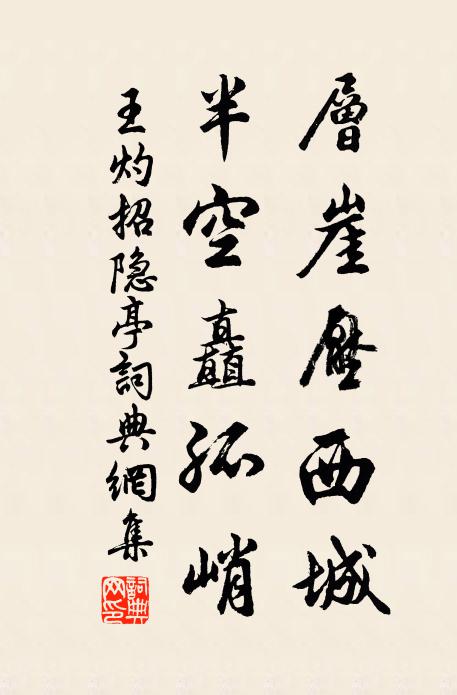 層崖壓西城
半空矗孤峭
王灼招隐亭詞典網集
詞典
网印